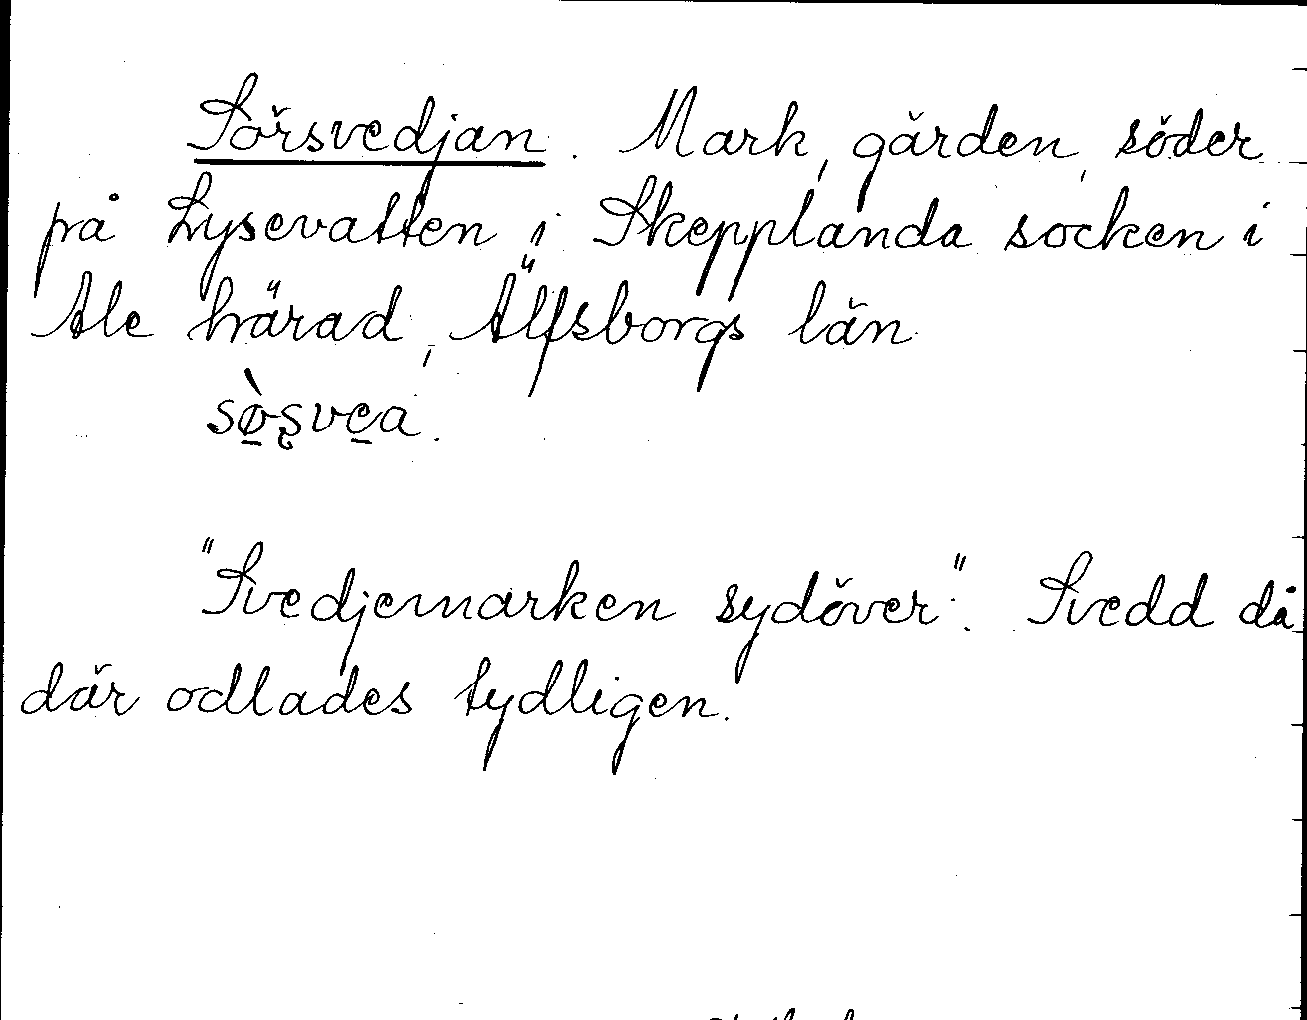 Sörsvedjan. Mark, gärden, söder
på Lysevatten i Skepplanda socken i
Ale härad, Älfsborgs län
sø̠̀ʂve̠a.
"Svedjemarken sydöver". Svedd då
där odlades tydligen.